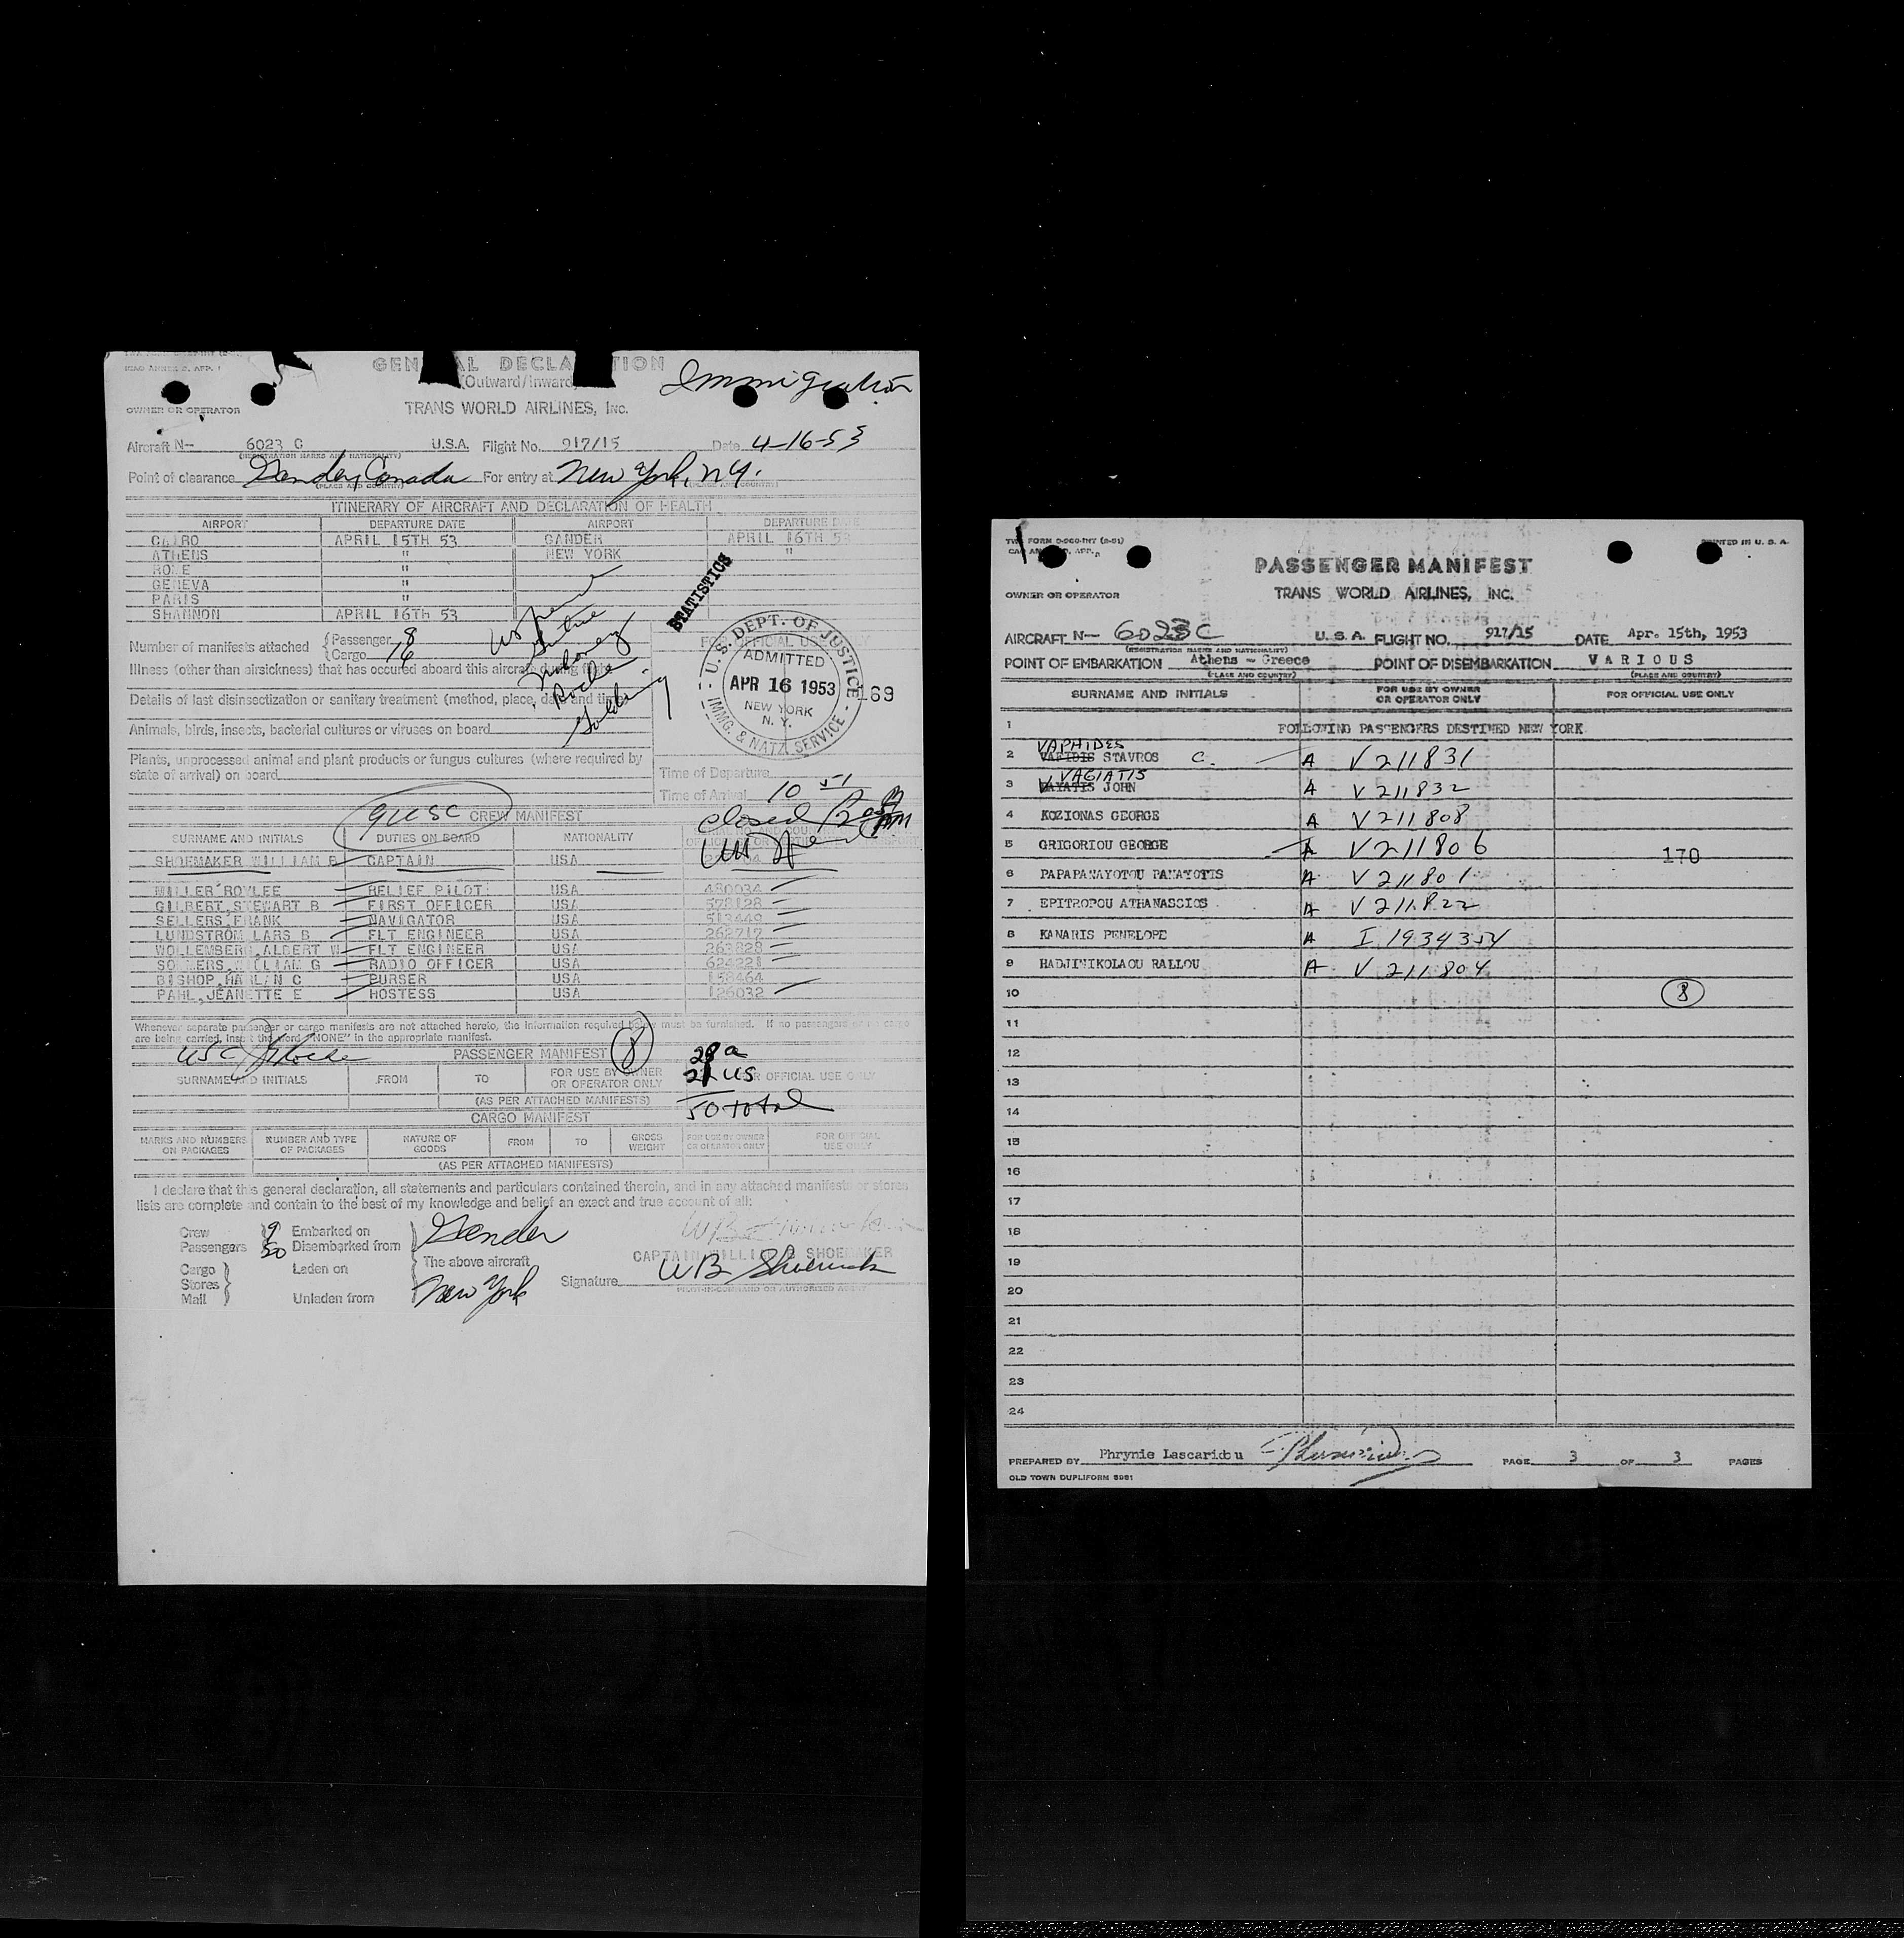 GENERAL DECLARATION
(Outward/Inward)
Immigration
OWNER OR OPERATOR
TRANS WORLD AIRLINES, INC.
Aircraft N— 6023 C U.S.A. Flight No. 917/15 Date 4-16-53
(REGISTRATION MARKS AND NATIONALITY)
Point of clearance Gander, Canada For entry at New York, N.Y.
(PLACE AND COUNTRY) (PLACE AND COUNTRY)
ITINERARY OF AIRCRAFT AND DECLARATION OF HEALTH
AIRPORT DEPARTURE DATE AIRPORT DEPARTURE DATE
CAIRO APRIL 15TH 53 GANDER APRIL 16TH 53
ATHENS " NEW YORK "
ROME "
GENEVA "
PARIS "
SHANNON APRIL 16TH 53
STATISTICS
Number of manifests attached Passenger 8
Cargo 16
Illness (other than airsickness) that has occured aboard this aircraft during flight
Details of last disinsectization or sanitary treatment (method, place, date and time)
Animals, birds, insects, bacterial cultures or viruses on board
Plants, unprocessed animal and plant products or fungus cultures (where required by
state of arrival) on board
FOR OFFICIAL USE ONLY
U. S. DEPT. OF JUSTICE
ADMITTED
APR 16 1953
NEW YORK
N. Y.
IMMG. & NATZ. SERVICE
169
Time of Departure
Time of Arrival 10 51
9 USC CREW MANIFEST closed
SURNAME AND INITIALS DUTIES ON BOARD NATIONALITY
SHOEMAKER WILLIAM B CAPTAIN USA
MILLER ROYLEE RELIEF PILOT USA 480034
GILBERT, STEWART B FIRST OFFICER USA 578128
SELLERS, FRANK NAVIGATOR USA 513449
LUNDSTROM LARS B FLT ENGINEER USA 262717
WOLLEMBERG, ALBERT W FLT ENGINEER USA 263828
SOMERS, WILLIAM G RADIO OFFICER USA 624221
BISHOP, HARLAN C PURSER USA 158464
PAHL, JEANETTE E HOSTESS USA 126032
Whenever separate passenger or cargo manifests are not attached hereto, the information required below must be furnished. If no passengers or no cargo
are being carried, insert the word "NONE" in the appropriate manifest.
PASSENGER MANIFEST 8
28 a
SURNAME AND INITIALS FROM TO FOR USE BY OWNER OR OPERATOR ONLY FOR OFFICIAL USE ONLY
US
(AS PER ATTACHED MANIFESTS) 50 total
CARGO MANIFEST
MARKS AND NUMBERS ON PACKAGES NUMBER AND TYPE OF PACKAGES NATURE OF GOODS FROM TO GROSS WEIGHT FOR USE BY OWNER OR OPERATOR ONLY FOR OFFICIAL USE ONLY
(AS PER ATTACHED MANIFESTS)
I declare that this general declaration, all statements and particulars contained therein, and in any attached manifests or stores
lists are complete and contain to the best of my knowledge and belief an exact and true account of all:
Crew 9 Embarked on Gander
Passengers 50 Disembarked from
Cargo Laden on The above aircraft
Stores
Mail Unladen from New York
CAPTAIN WILLIAM B SHOEMAKER
Signature WB Shoemaker
PILOT-IN-COMMAND OR AUTHORIZED AGENT
PRINTED IN U. S. A.
PASSENGER MANIFEST
OWNER OR OPERATOR TRANS WORLD AIRLINES, INC.
AIRCRAFT N— 6023C U. S. A. FLIGHT NO. 917/15 DATE Apr. 15th, 1953
(REGISTRATION MARKS AND NATIONALITY)
POINT OF EMBARKATION Athens - Greece POINT OF DISEMBARKATION VARIOUS
(PLACE AND COUNTRY) (PLACE AND COUNTRY)
SURNAME AND INITIALS FOR USE BY OWNER OR OPERATOR ONLY FOR OFFICIAL USE ONLY
1 FOLLOWING PASSENGERS DESTINED NEW YORK
VAPHIDES
2 VAFIDIS STAVROS C. A V 211831
VAGIATIS
3 VAYATIS JOHN A V 211832
4 KOZIONAS GEORGE A V 211808
5 GRIGORIOU GEORGE A V 211806
170
6 PAPAPANAYOTOU PANAYOTIS A V 211801
7 EPITROPOU ATHANASSIOS A V 211822
8 KANARIS PENELOPE A I 1934354
9 HADJINIKOLAOU RALLOU A V 211804
10 8
11
12
13
14
15
16
17
18
19
20
21
22
23
24
PREPARED BY Phrynie Lascaridou PAGE 3 OF 3 PAGES
OLD TOWN DUPLIFORM 5981